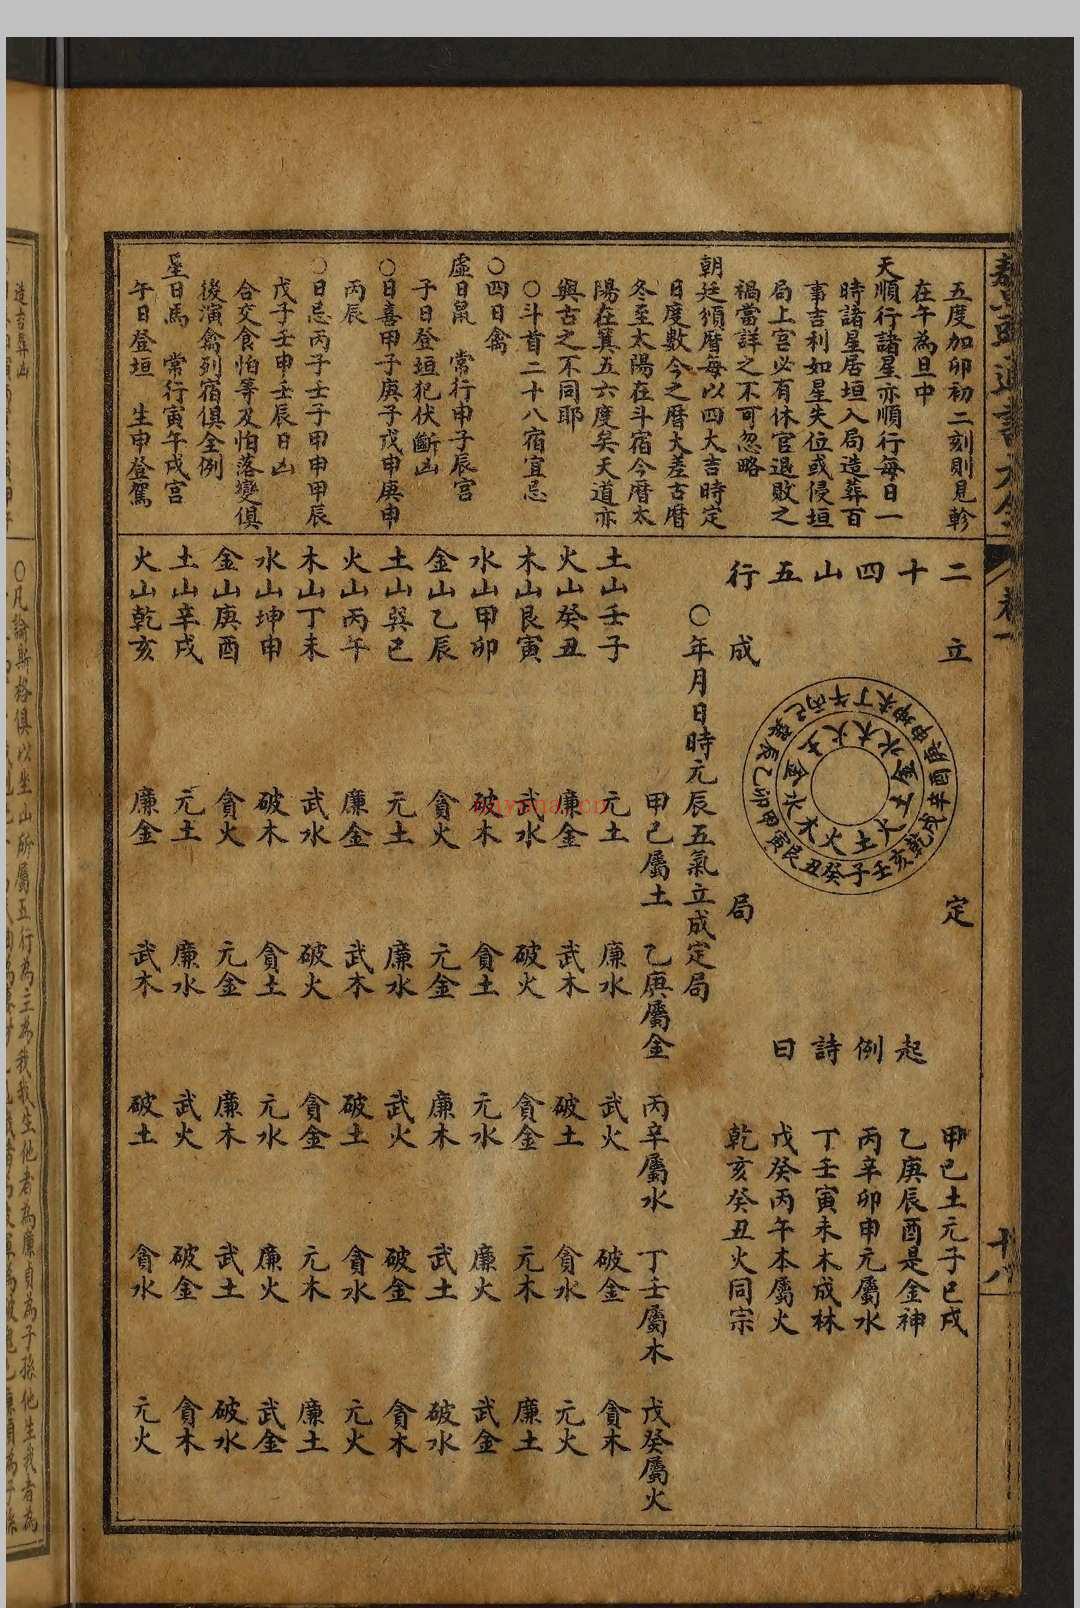 五度加卯初二刻則見軫
在午為旦中
天順行諸星亦順行每日一
時諸星居垣入局造葬百
事吉利如星失位或侵垣
局上宮必有休官退敗之
禍當詳之不可忽略
朝廷頒曆每以四大吉時定
日度數今之曆大差古曆
冬至太陽在斗宿今曆太
陽在箕五六度矣天道亦
與古之不同耶
○斗首二十八宿宜忌
○四日禽
虛日鼠 常行申子辰宮
子日登垣犯伏斷凶
○日喜甲子庚子戊申庚申
丙辰
○日忌丙子壬子甲申甲辰
戊子壬申壬辰日凶
合交食怕箒及怕落變俱
後演禽列宿俱全例
星日馬 常行寅午戌宮
午日登垣 生申登駕
二十四山五行
立成定局
壬子癸丑艮寅甲卯乙辰巽巳丙午丁未坤申庚酉辛戌乾亥
土火木水金土火木水金土火
起例詩曰
甲己土元子巳戌
乙庚辰酉是金神
丙辛卯申元屬水
丁壬寅未木成林
戊癸丙午本屬火
乾亥癸丑火同宗
○年月日時元辰五氣立成定局
甲己屬土 乙庚屬金 丙辛屬水 丁壬屬木 戊癸屬火
土山壬子 元土 廉水 武火 破金 貪木
火山癸丑 廉金 武木 破土 貪水 元火
木山艮寅 武水 破火 貪金 元木 廉土
水山甲卯 破木 貪土 元水 廉火 武金
金山乙辰 貪火 元金 廉木 武土 破水
土山巽巳 元土 廉水 武火 破金 貪木
火山丙午 廉金 武木 破土 貪水 元火
木山丁未 武水 破火 貪金 元木 廉土
水山坤申 破木 貪土 元水 廉火 武金
金山庚酉 貪火 元金 廉木 武土 破水
土山辛戌 元土 廉水 武火 破金 貪木
火山乾亥 廉金 武木 破土 貪水 元火
卷一
十八
造吉葬凶
○凡論斯格俱以坐山所屬五行為主為我我生他者為廉貞為子孫他生我者為